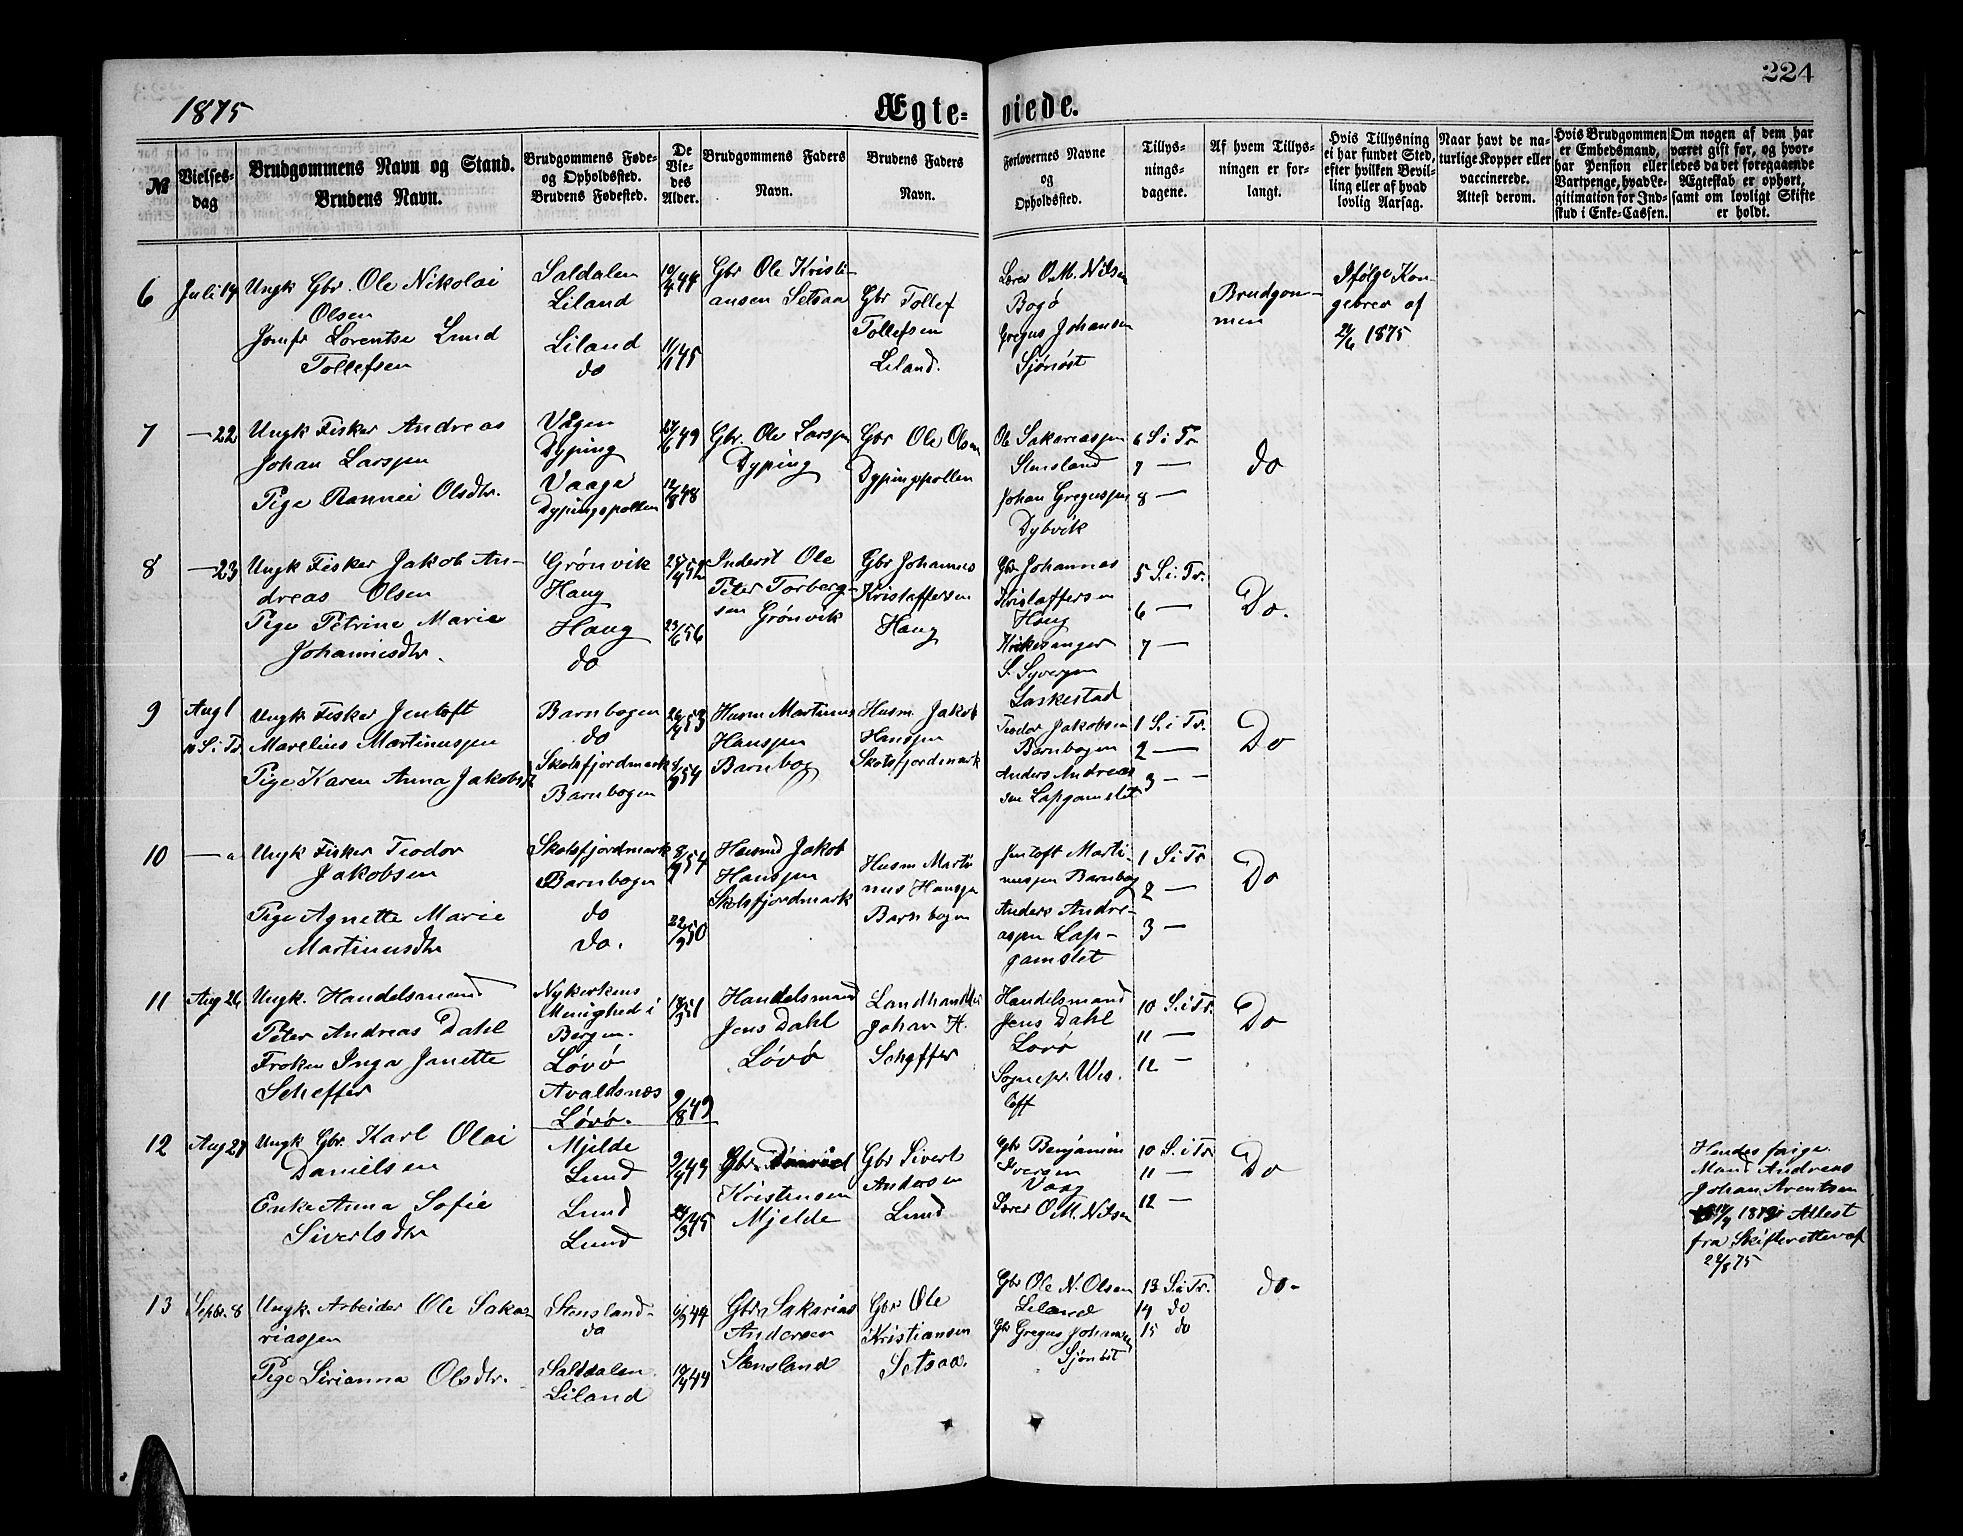 224
1875
Ægte-
viede.
№
Vielses-
dag
Brudgommens Navn og Stand.
Brudens Navn.
Brudgommens Føde-
og Opholdssted.
Brudens Fødested.
De
Vie-
des
Alder.
Brudgommens Faders
Navn.
Brudens Faders
Navn.
Forlovernes Navne
og
Opholdssted.
Tillys-
nings-
dagene.
Af hvem Tillys-
ningen er for-
langt.
Hvis Tillysning
ei har fundet Sted,
efter hvilken Bevil-
ling eller af hvad
lovlig Aarsag.
Naar havt de na-
turlige Kopper eller
vaccinerede.
Attest derom.
Hvis Brudgommen
er Embedsmand,
har Pension eller
Vartpenge, hvad Le-
gitimation for Ind-
skud i Enke-Cassen.
Om nogen af dem har
været gift før, og hvor-
ledes da det foregaaende
Ægteskab er ophørt,
samt om lovligt Skifte
er holdt.
6
Juli 19
Ungk Gbr. Ole Nikolai
Olsen
Jomfr Lorentse Lund
Tollefsen
Saldalen
Liland
Liland
do
11/1 45
Gbr Ole Kristi-
ansen Setsaa
Gbr Tollef
Tollefsen
Liland.
Lærer O.M. Nilsen
Bogö
Gregus Johansen
Sjönöst
Brudgom-
men
Ifølge Kon-
gebrev af
1875
7
— 22
Ungk Fisker Andreas
Johan Larssen
Pige Rannei Olsdtr.
Vågen
Dyping
Vaage
Dypingspollen
27/6 49
12/8 48
Gbr. Ole Larssen
Dyping
Gbr Ole Olsen
Dypingpollen
Ole Sakariassen
Stensland
Johan Gregussen
Dybvik
6 S. i Tr.
7 —
8 —
do
8
— 23
Ungk Fisker Jakob An-
dreas Olsen
Pige Petrine Marie
Johannesdtr.
Grönvik
Haug
Haug
do
25/4 52
23/6 56
Inderst Ole
Peter Torberg-
sen Grönvik
Gbr Johannes
Kristaffersen
Haug
Gbr Johannes
Kristaffersen
Haug
Kirkesanger
S. Syversen
Laskestad
5 S. i. Tr.
6 —
7 —
Do.
9
Aug 1
10 S. i Tr.
Ungk Fisker Jentoft
Marelius Martinussen
Pige Karen Anna Jakobsd
Barnbogen
do
Skotsfjordmark
Barnbogen
Husm Martinus
Hanssen
Barnbog
Husm Jakob
Hanssen
Skotsfjordmark
Teodor Jakobsen
Barnbogen
Anders Andreas
sen Lapgamslet
1 S. i Tr.
2 —
3 — -
Do
10
— "
Ungk Fisker Teodor
Jakobsen
Pige Agnette Marie
Martinusdtr
Skotsfjordmark
Barnbogen
do
do.
22/9 50
Husmd Jakob
Hanssen
Skotsfjordmark
Husm Marti
nus Hanssen
Barnbogen
Jentoft Marti-
nussen Barnbog
Anders Andre-
assen Lap-
gamslet
1 S i Tr
2 —
3 —
Do
11
Aug 26
Ungk. Handelsmand
Peter Andreas Dahl
Froken Inga Janette
Scheffer
Nykirkens
Menighed i
Bergen.
Lövö
Avaldsnes
Lövö.
18/3 51
9/8 49
Handelsmand
Jens Dahl
Lövö
Landhandler
Johan H.
Scheffer
Handelsmand
Jens Dahl
Lovö
Sognepr. Wis.
löff
10 S. i Tr.
11 —
12 —
Do
12
Aug 27
Ungk Gbr. Karl Olai
Danielsen
Enke Anna Sofie
Sivertsdtr
Mjelde
Lund
Lund
Lund
9/4 49
24/3 45
Gbr Daniel
Kristensen
Mjelde
Gbr Sivert
Andersen
Lund
Gbr Benjamin
Iversen
Vaag
Lærer O.M. Nilsen
10 S. i Tr.
11 —
12 —
Do
Hendes forige
Mand Andreas
Johan Arentsen
Attest
fra Skifteretten af
13
Septbr. 8
Ungk. Arbeider Ole Saka-
riassen
Pige Sirianna Olsdtr.
Stensland-
do
Saltdalen.
Liland
Gbr Sakarias
Andersen
Stensland
Gbr Ole
Kristiansen
Setsaa.
Gbr Ole N. Olsen
Liland
Gbr Gregus Johansen
Sjönöst
13 S. i Tr.
14 do
15 do
do-